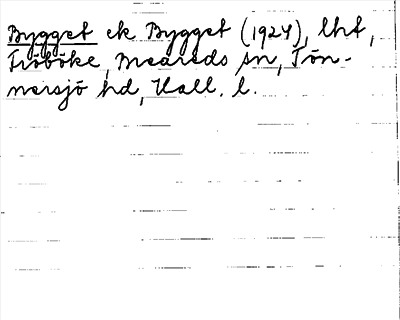 Bygget ek Bygget (1924), lht,
Fröböke, Breareds sn, Tön-
nersjö hd, Hall. l.